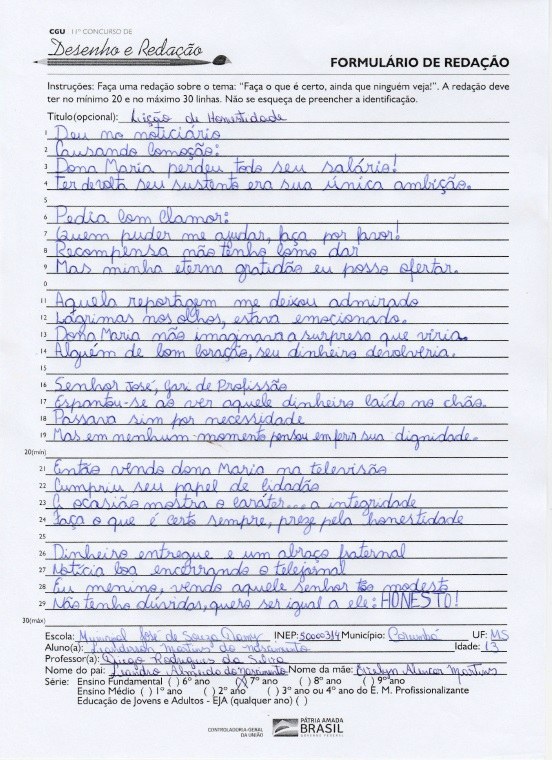 CGU 11º CONCURSO DE
Desenho e Redação
FORMULÁRIO DE REDAÇÃO
Instruções: Faça uma redação sobre o tema: "Faça o que é certo, ainda que ninguém veja!". A redação deve
ter no mínimo 20 e no máximo 30 linhas. Não se esqueça de preencher a identificação.
Título(opcional): Lição de Honestidade
1 Deu no noticiário
2 Causando comoção:
3 Dona Maria perdeu todo seu salário!
4 Ter devolta seu sustento era sua única ambição.
5
6 Pedia com clamor:
7 Quem puder me ajudar, faça por favor!
8 Recompensa não tenho como dar
9 Mas minha eterna gratidão eu posso ofertar.
0
11 Aquela reportagem me deixou admirado
12 Lágrimas nos olhos, estava emocionado.
13 Dona Maria não imaginava a surpresa que viria.
14 Alguém de bom coração, seu dinheiro devolveria.
15
16 Senhor José, gari de Profissão
17 Espantou-se ao ver aquele dinheiro caído no chão.
18 Passava sim por necessidade
19 Mas em nenhum momento pensou em ferir sua dignidade.
20(min)
21 Então vendo dona Maria na televisão
22 Cumpriu seu papel de cidadão
23 A ocasião mostra o caráter... a integridade
24 Faça o que é certo sempre, preze pela honestidade
25
26 Dinheiro entregue e um abraço fraternal
27 Notícia boa encerrando o telejornal
28 Eu menino, vendo aquele senhor tão modesto
29 Não tenho dúvidas, quero ser igual a ele: HONESTO!
30(máx)
Escola: Municipal José de Souza Damy INEP: 50000314 Município: Corumbá UF: MS
Aluno(a): Martins do nascimento Idade: 13
Professor(a): Diego Rodrigues da Silva
Nome do pai: Leandro Almeida do nascimento Nome da mãe: Evelyn Alencar Martins
Série: Ensino Fundamental ( ) 6º ano (X) 7º ano ( ) 8º ano ( ) 9º ano
Ensino Médio ( ) 1º ano ( ) 2º ano ( ) 3º ano ou 4º ano do E. M. Profissionalizante
Educação de Jovens e Adultos - EJA (qualquer ano) ( )
CONTROLADORIA-GERAL
DA UNIÃO
PÁTRIA AMADA
BRASIL
GOVERNO FEDERAL